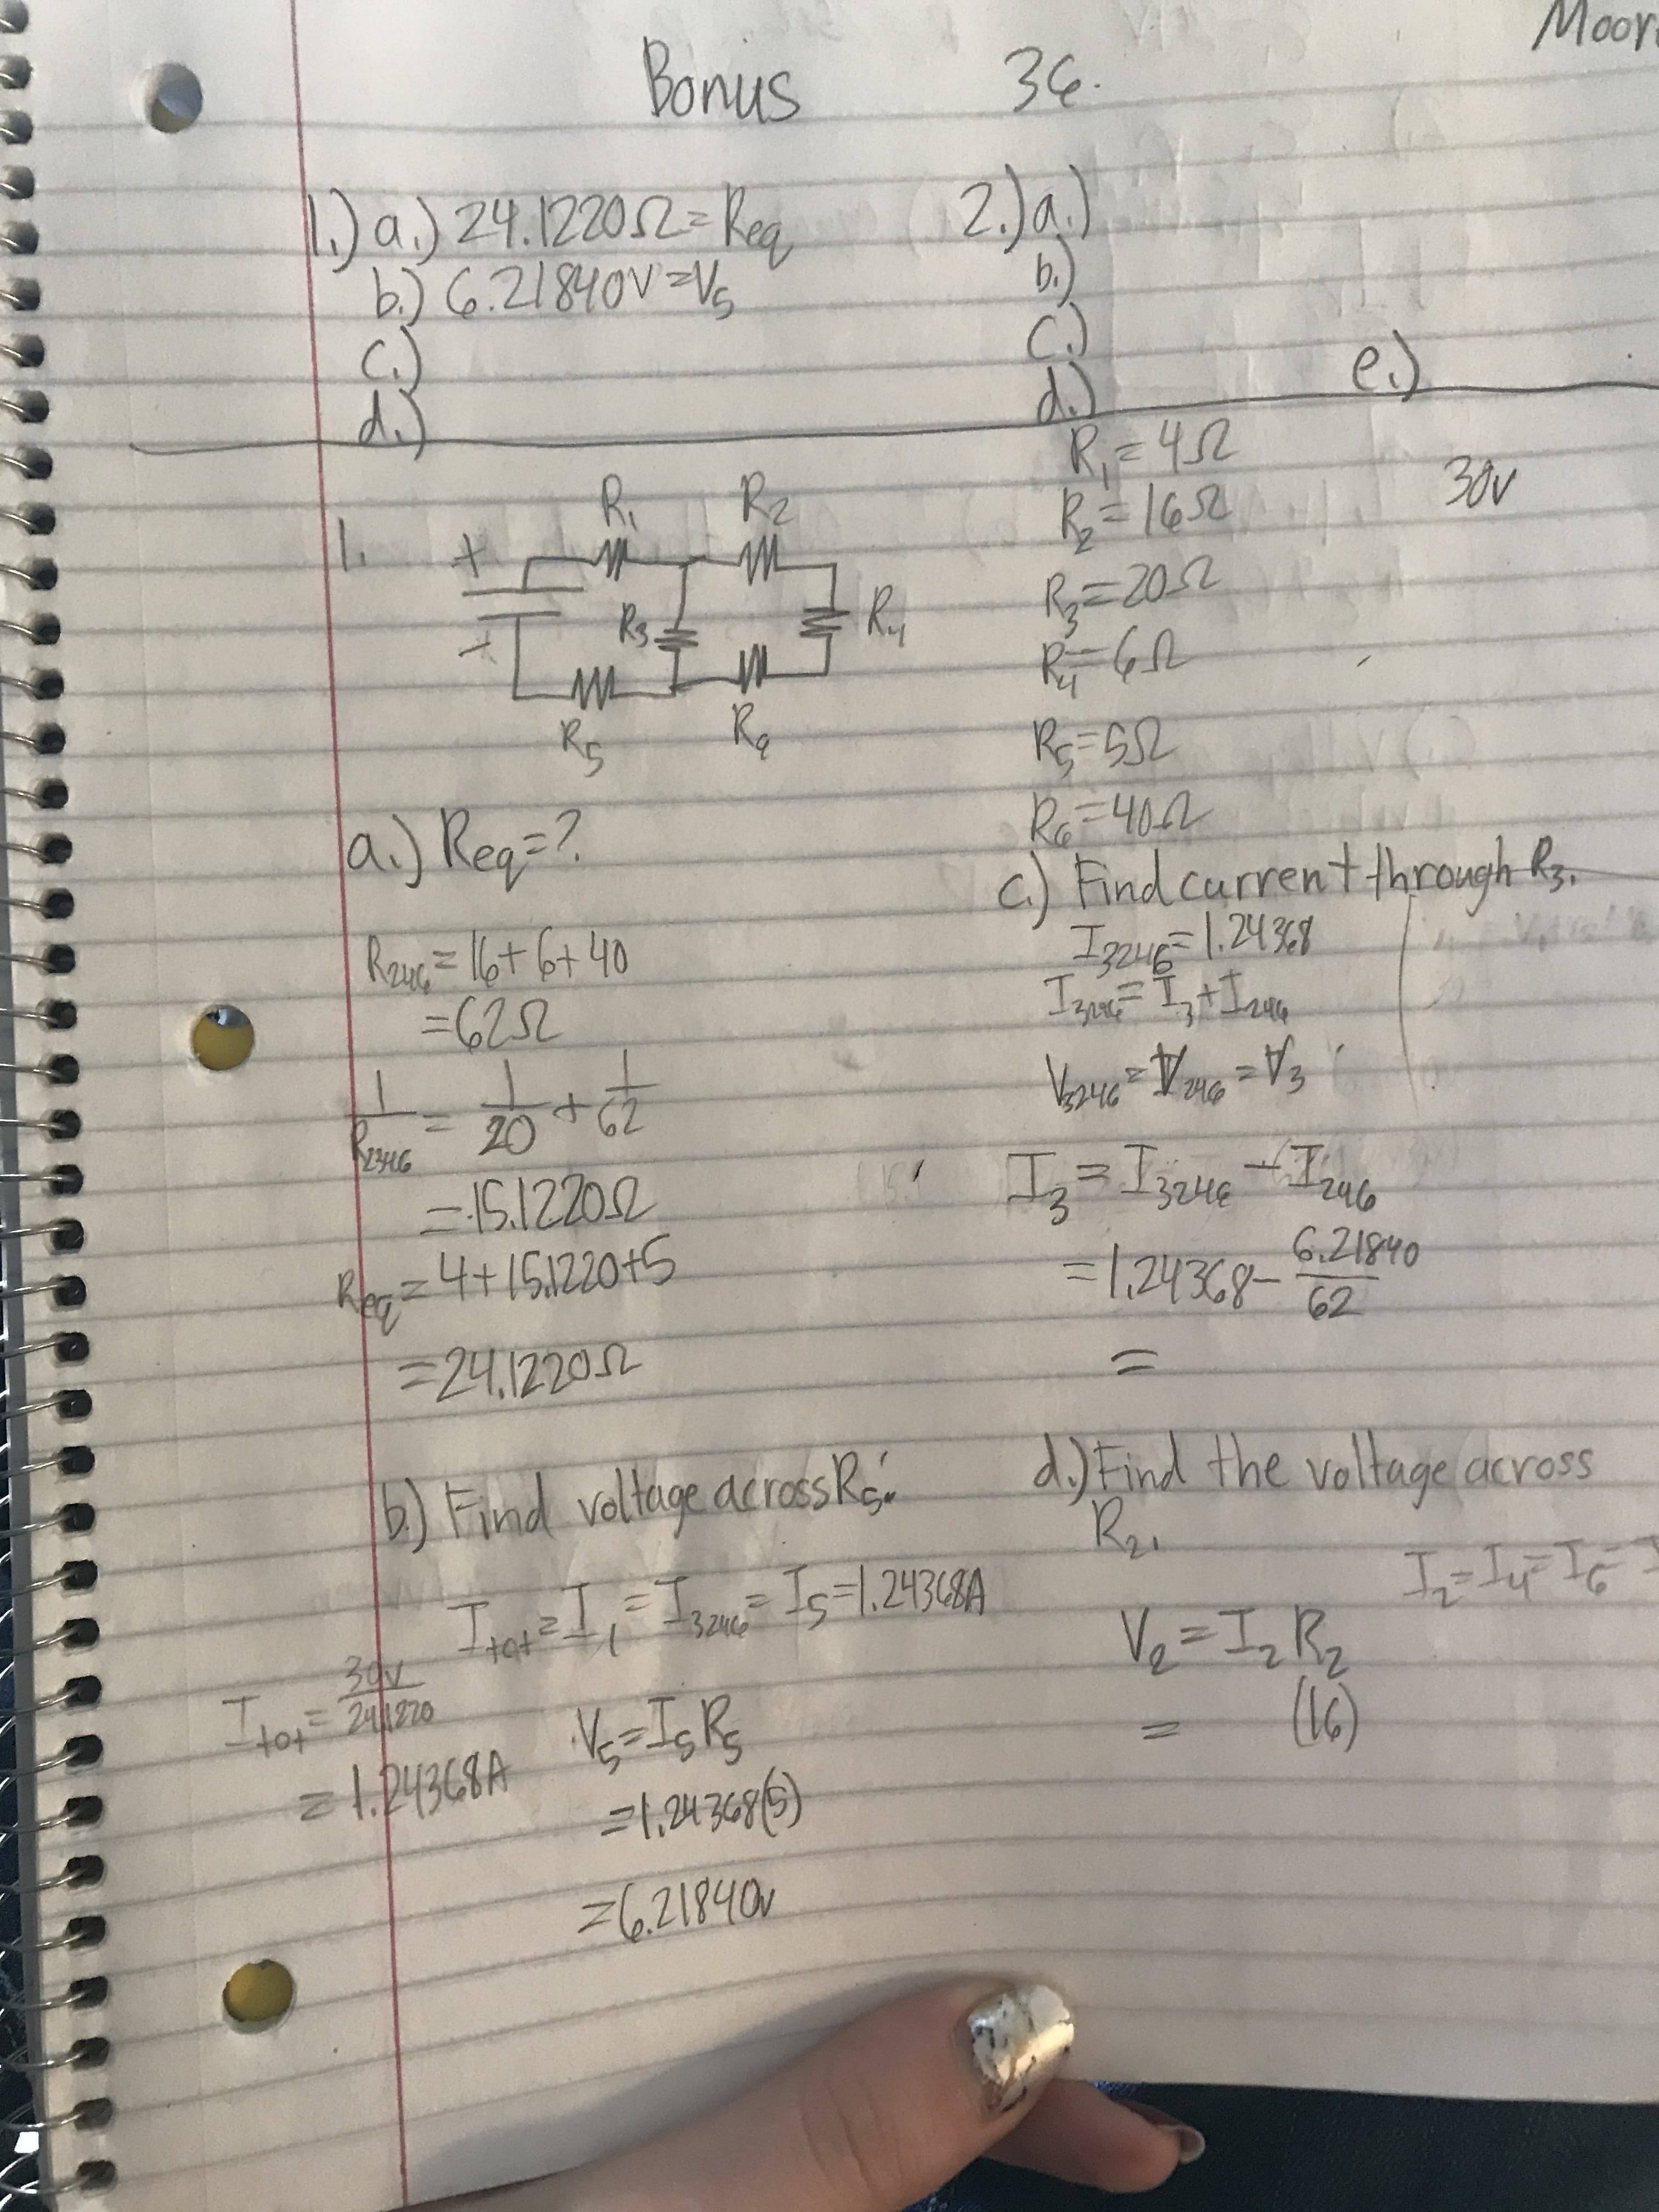 Moor
Bonus 36.
1.) a.) 24.1220Ω = Req
b.) 6.21840V = V5
c.)
d.)
2.) a.)
b.)
c.)
d.)
e.)
1.
+
R1 R2
R3 R4
-
R5
R1 = 4Ω
R2 = 16Ω
R3 = 20Ω
R4 = 6Ω
R5 = 5Ω
R6 = 40Ω
30v
a.) Req = ?
R246 = 16 + 6 + 40
= 62Ω
1/R2346 = 1/20 + 1/62
= 15.1220Ω
Req = 4 + 15.1220 + 5
= 24.1220Ω
b.) Find voltage across R5:
Itot = I1 = I3246 = I5 = 1.24368A
Itot = 30v/24.1220
= 1.24368A
V5 = I5 R5
= 1.24368(5)
= 6.21840v
c.) Find current through R3.
I3246 = 1.24368
I3246 = I3 + I246
V3246 = V246 = V3
I3 = I3246 - I246
= 1.24368 - 6.21840/62
=
d.) Find the voltage across
R2.
I2 = I4 = I6 =
V2 = I2 R2
= (16)